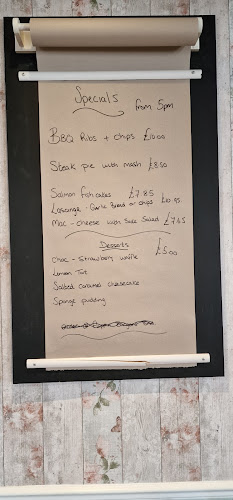 Specials from 5pm
BBQ Ribs + chips £10.00
Steak pie with mash £8.50
Salmon fishcakes £7.85
Lasagne - Garlic Bread or chips £10.95
Mac - cheese with Side Salad £7.45
Desserts £5.00
Choc - Strawberry waffle
Lemon Tart
Salted caramel cheesecake
Sponge pudding